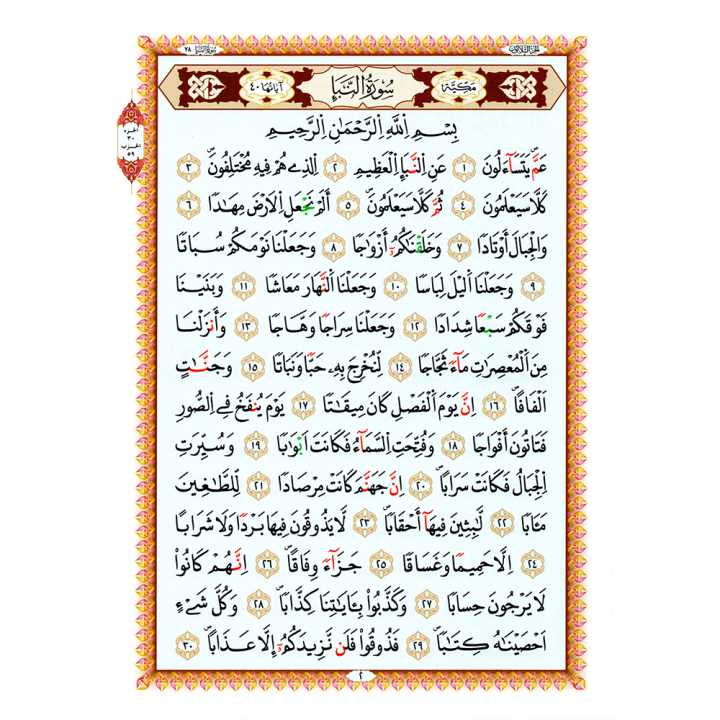 الجزء الثلاثون
سورة النبإ ٧٨
مكية
سُورَةُ النَّبَإِ
آياتها ٤٠
الجزء
٣٠
الحزب
٥٩
بِسْمِ اللَّهِ الرَّحْمَٰنِ الرَّحِيمِ
عَمَّ يَتَسَآءَلُونَ ١ عَنِ النَّبَإِ الْعَظِيمِ ٢ الَّذِي هُمْ فِيهِ مُخْتَلِفُونَ ٣
كَلَّا سَيَعْلَمُونَ ٤ ثُمَّ كَلَّا سَيَعْلَمُونَ ٥ أَلَمْ نَجْعَلِ الْأَرْضَ مِهَادًا ٦
وَالْجِبَالَ أَوْتَادًا ٧ وَخَلَقْنَاكُمْ أَزْوَاجًا ٨ وَجَعَلْنَا نَوْمَكُمْ سُبَاتًا
٩ وَجَعَلْنَا اللَّيْلَ لِبَاسًا ١٠ وَجَعَلْنَا النَّهَارَ مَعَاشًا ١١ وَبَنَيْنَا
فَوْقَكُمْ سَبْعًا شِدَادًا ١٢ وَجَعَلْنَا سِرَاجًا وَهَّاجًا ١٣ وَأَنزَلْنَا
مِنَ الْمُعْصِرَاتِ مَآءً ثَجَّاجًا ١٤ لِّنُخْرِجَ بِهِ حَبًّا وَنَبَاتًا ١٥ وَجَنَّاتٍ
أَلْفَافًا ١٦ إِنَّ يَوْمَ الْفَصْلِ كَانَ مِيقَاتًا ١٧ يَوْمَ يُنفَخُ فِي الصُّورِ
فَتَأْتُونَ أَفْوَاجًا ١٨ وَفُتِّحَتِ السَّمَآءُ فَكَانَتْ أَبْوَابًا ١٩ وَسُيِّرَتِ
الْجِبَالُ فَكَانَتْ سَرَابًا ٢٠ إِنَّ جَهَنَّمَ كَانَتْ مِرْصَادًا ٢١ لِّلطَّاغِينَ
مَآبًا ٢٢ لَّابِثِينَ فِيهَآ أَحْقَابًا ٢٣ لَّا يَذُوقُونَ فِيهَا بَرْدًا وَلَا شَرَابًا
٢٤ إِلَّا حَمِيمًا وَغَسَاقًا ٢٥ جَزَآءً وِفَاقًا ٢٦ إِنَّهُمْ كَانُوا
لَا يَرْجُونَ حِسَابًا ٢٧ وَكَذَّبُوا بِـَٔايَاتِنَا كِذَّابًا ٢٨ وَكُلَّ شَيْءٍ
أَحْصَيْنَاهُ كِتَابًا ٢٩ فَذُوقُوا فَلَن نَّزِيدَكُمْ إِلَّا عَذَابًا ٣٠
٢